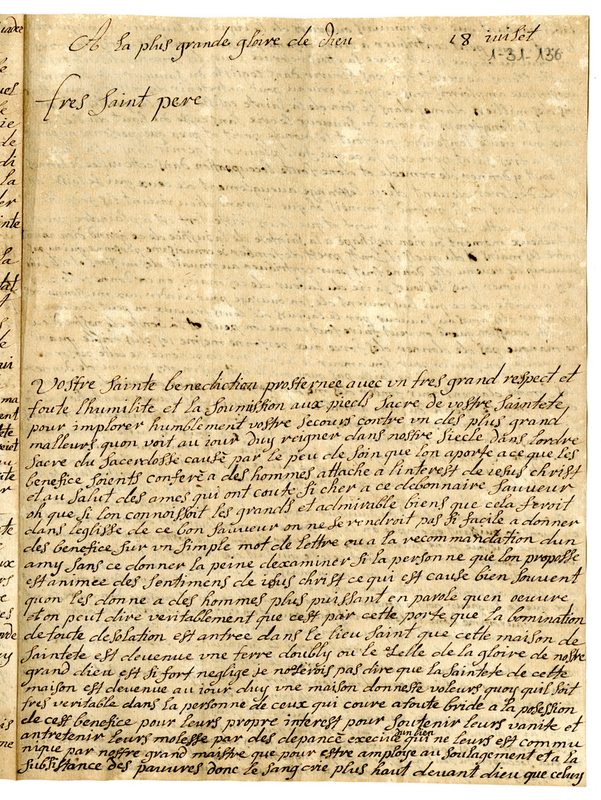 A la plus grande gloire de dieu 18 iuilet
1-31-136
tres saint pere
Vostre sainte benediction prosternee avec vn tres grand respect et
toute lhumilite et la soumission aux pieds sacre de vostre saintete
pour implorer humblement vostre secours contre vn des plus grand
malleurs quon voit au iour duy reigner dans nostre siecle dans lordre
sacre du sacerdosse causé par le peu de soin que lon aporte a ce que les
benefice soients conferè a des hommes attache a linterest de iesus christ
et au salut des ames qui ont couté si cher a ce debonnaire sauveur
oh que si lon connoissoit les grands et admirable biens que cela feroit
dans leglisse de ce bon sauveur on ne se rendroit pas si facile a donner
des benefice sur vn simple mot de lettre ou a la recommandation dun
amy sans ce donner la peine dexaminer si la personne que lon propose
est animée des sentimens de iesus christ ce qui est cause bien souvent
quon les donne a des hommes plus puissant en parole quen oeuvre
et on peut dire veritablement que cest par cette porte que la bomination
de toute desolation est antree dans le lieu saint que cette maison de
saintete est devenue vne terre doubly ou le zelle de la gloire de nostre
grand dieu est si fort neglige je noterois pas dire que la saintete de cette
maison est devenue au iour duy vne maison donneste voleurs quoy quil soit
tres veritable dans la personne de ceux qui coure a toute bride a la posession
de cest benefice pour leurs propre interest pour soutenir leurs vanite et
antretenir leurs molesse par des depance execive dun bien qui ne leurs est commu
nique par nostre grand maistre que pour estre amploie au soulagement et a la
subsistance des pauvres donc le sang crie plus haut devant dieu que celuy